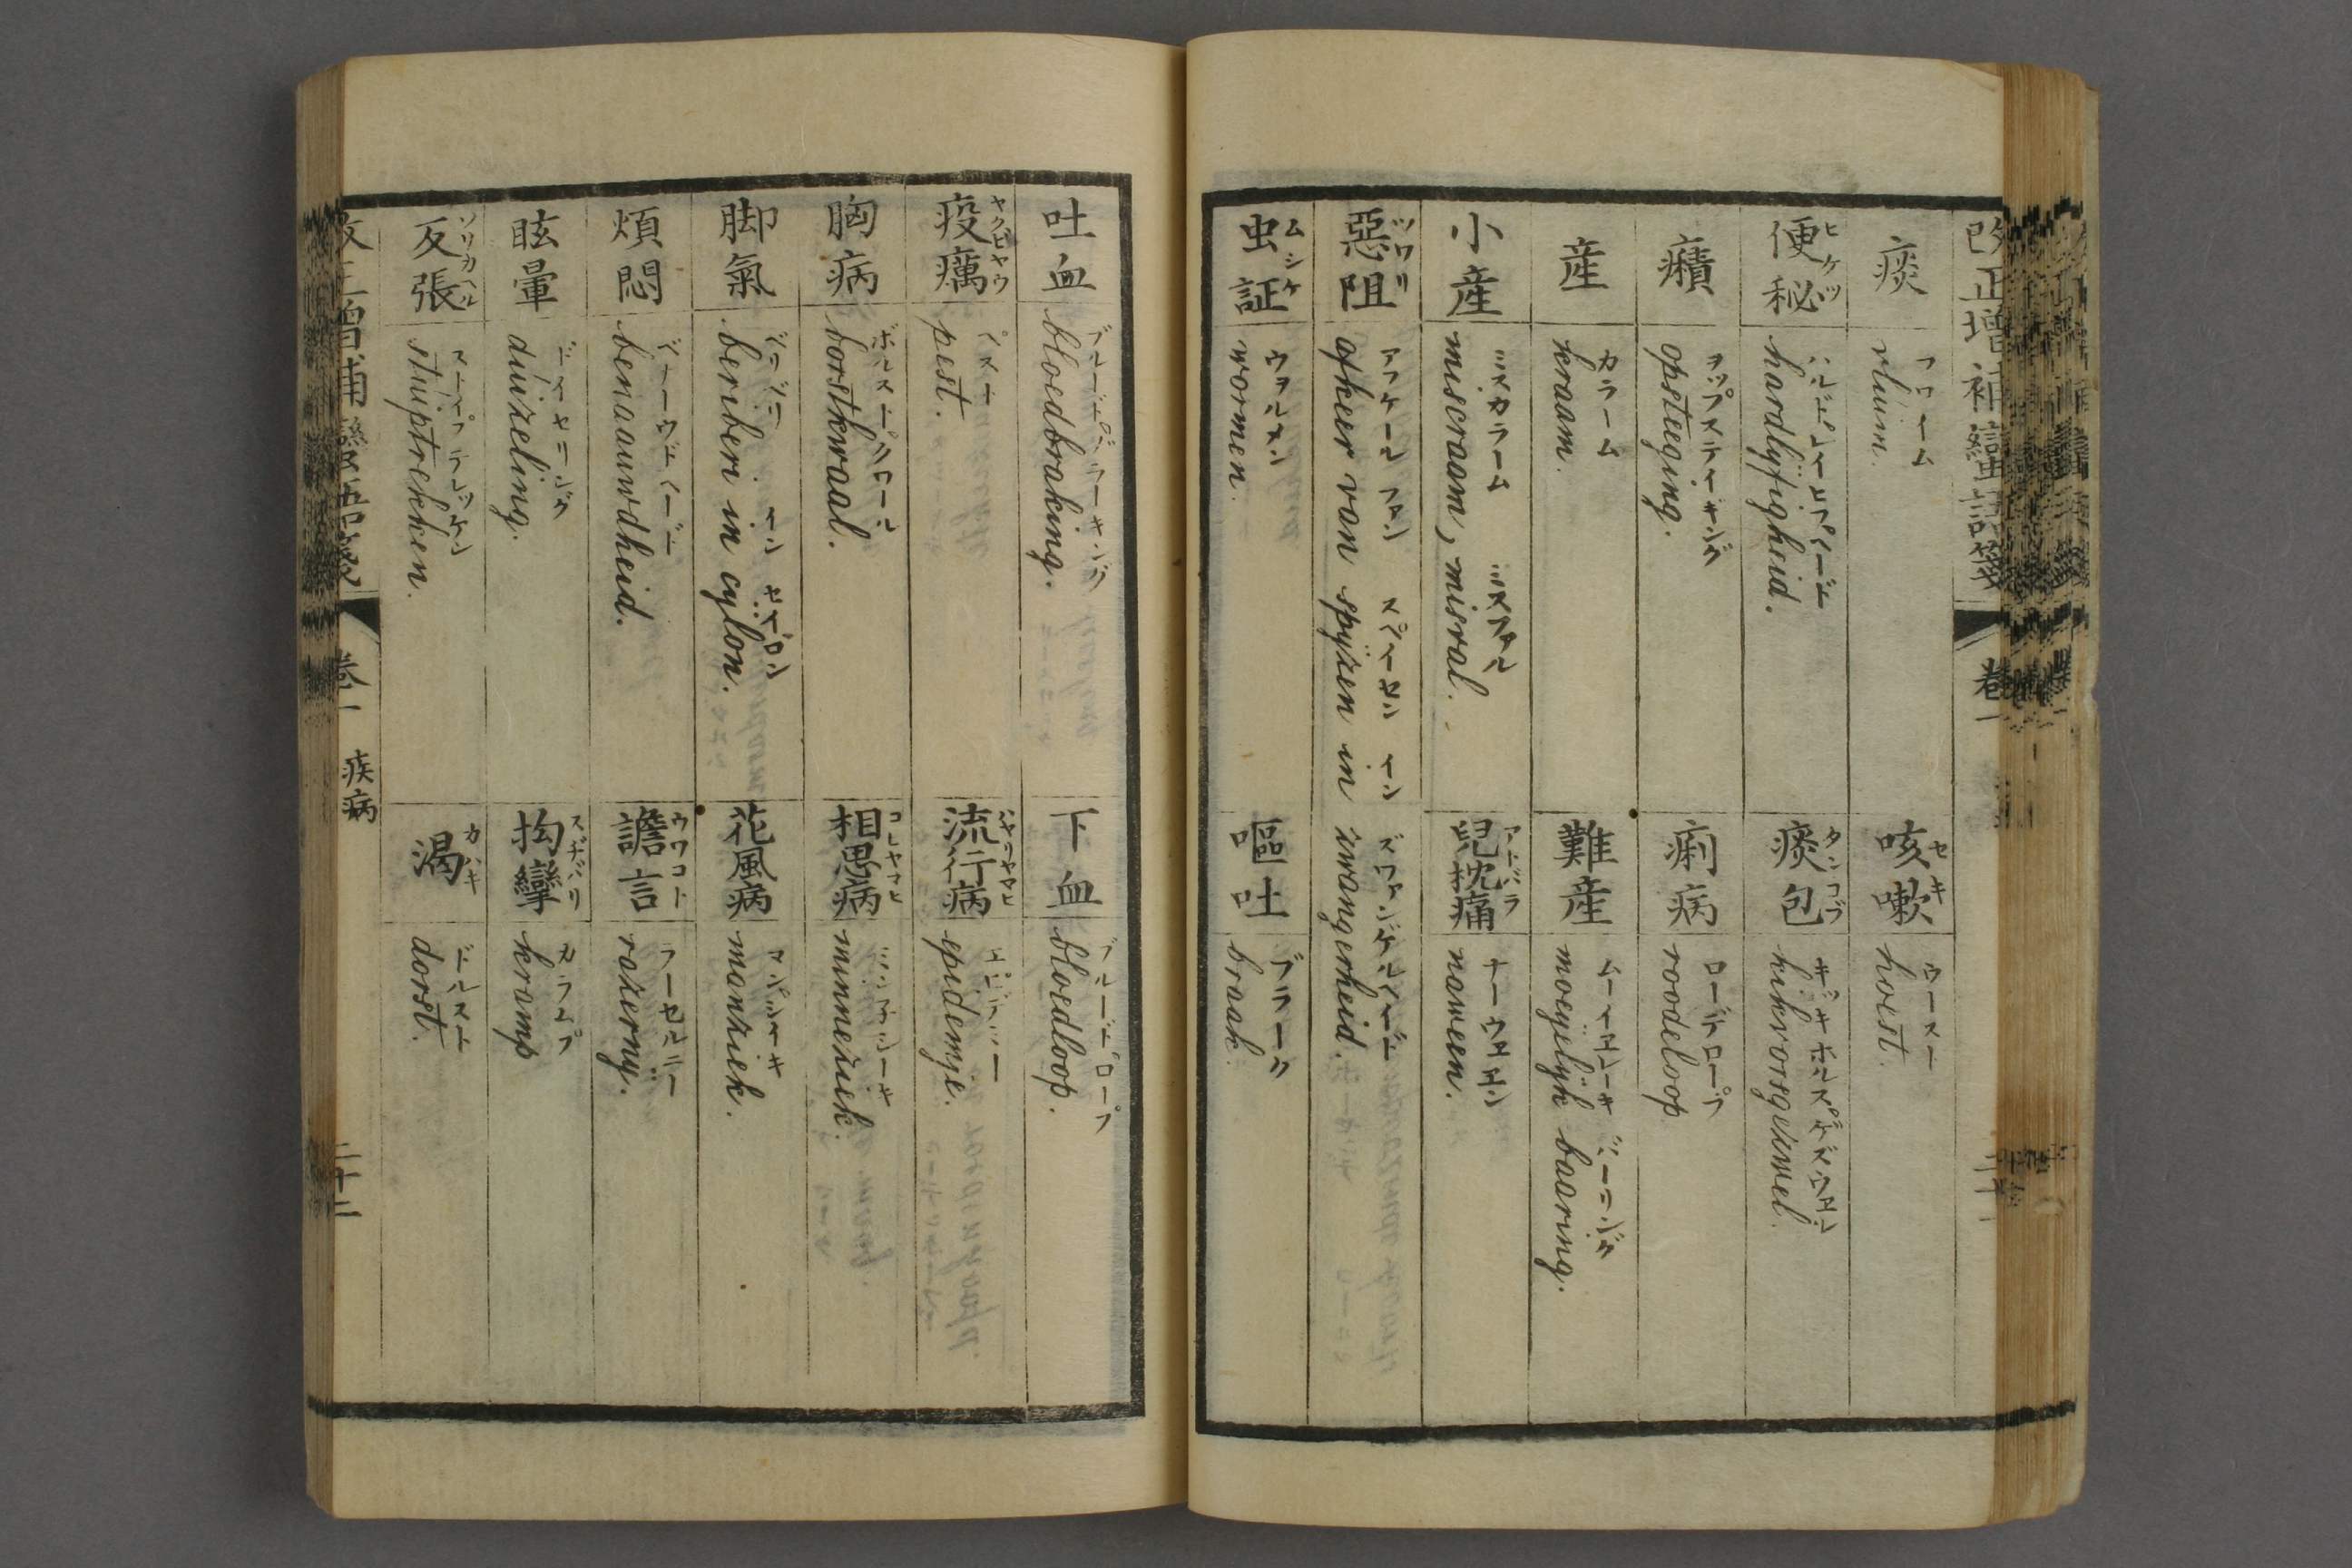 改正増補蠻語箋
卷一
痰
フロイム
vluim.
咳嗽
セキ
ウースト
hoest.
便秘
ヒケツ
ハルドレイヒヘイード
hardlyfigheid.
痰包
タンコブ
キッキホルスゲズウェル
kikvorsgezwel.
癪
ヲップステイキング
opsteeging.
痢病
ローデロープ
roodeloop
産
カラーム
kraam.
難産
ムーイエレーキ バーリング
moeyelyk baaring.
小産
ミスカラーム ミスファル
miscraam, misval.
兒枕痛
アトバラ
ナーウェエン
naween.
惡阻
ツワリ
アフケール ファン スペイセン イン ズワンゲルヘイード
afkeer van spyzen in zwangerheid.
虫証
ムシケ
ウヲルメン
wormen.
嘔吐
ブラーク
braak.
吐血
ブルードブラーキング
bloedbraking.
下血
ブルードロープ
bloedloop.
疫癘
ヤクビヤウ
ペスト
pest.
流行病
ハヤリヤマヒ
エピデミー
epidemye.
胸病
ボルストクワール
borstkwaal.
相思病
コヒヤマヒ
ミンネシーキ
minneziek.
脚氣
ベリベリ イン セイロン
beriberi in cylon.
花風病
マンシイキ
manziek.
煩悶
ベナーウドヘイド
benaauwdheid.
譫言
ウワコト
ラーセルニー
razerny.
眩暈
ドイセリング
duizeling.
拘攣
スヂバリ
カラムプ
kramp
反張
ソリカヘル
ストイプテレッケン
stuiptrekken.
渇
カハキ
ドルスト
dorst.
改正増補蠻語箋
卷一
疾病
二十二